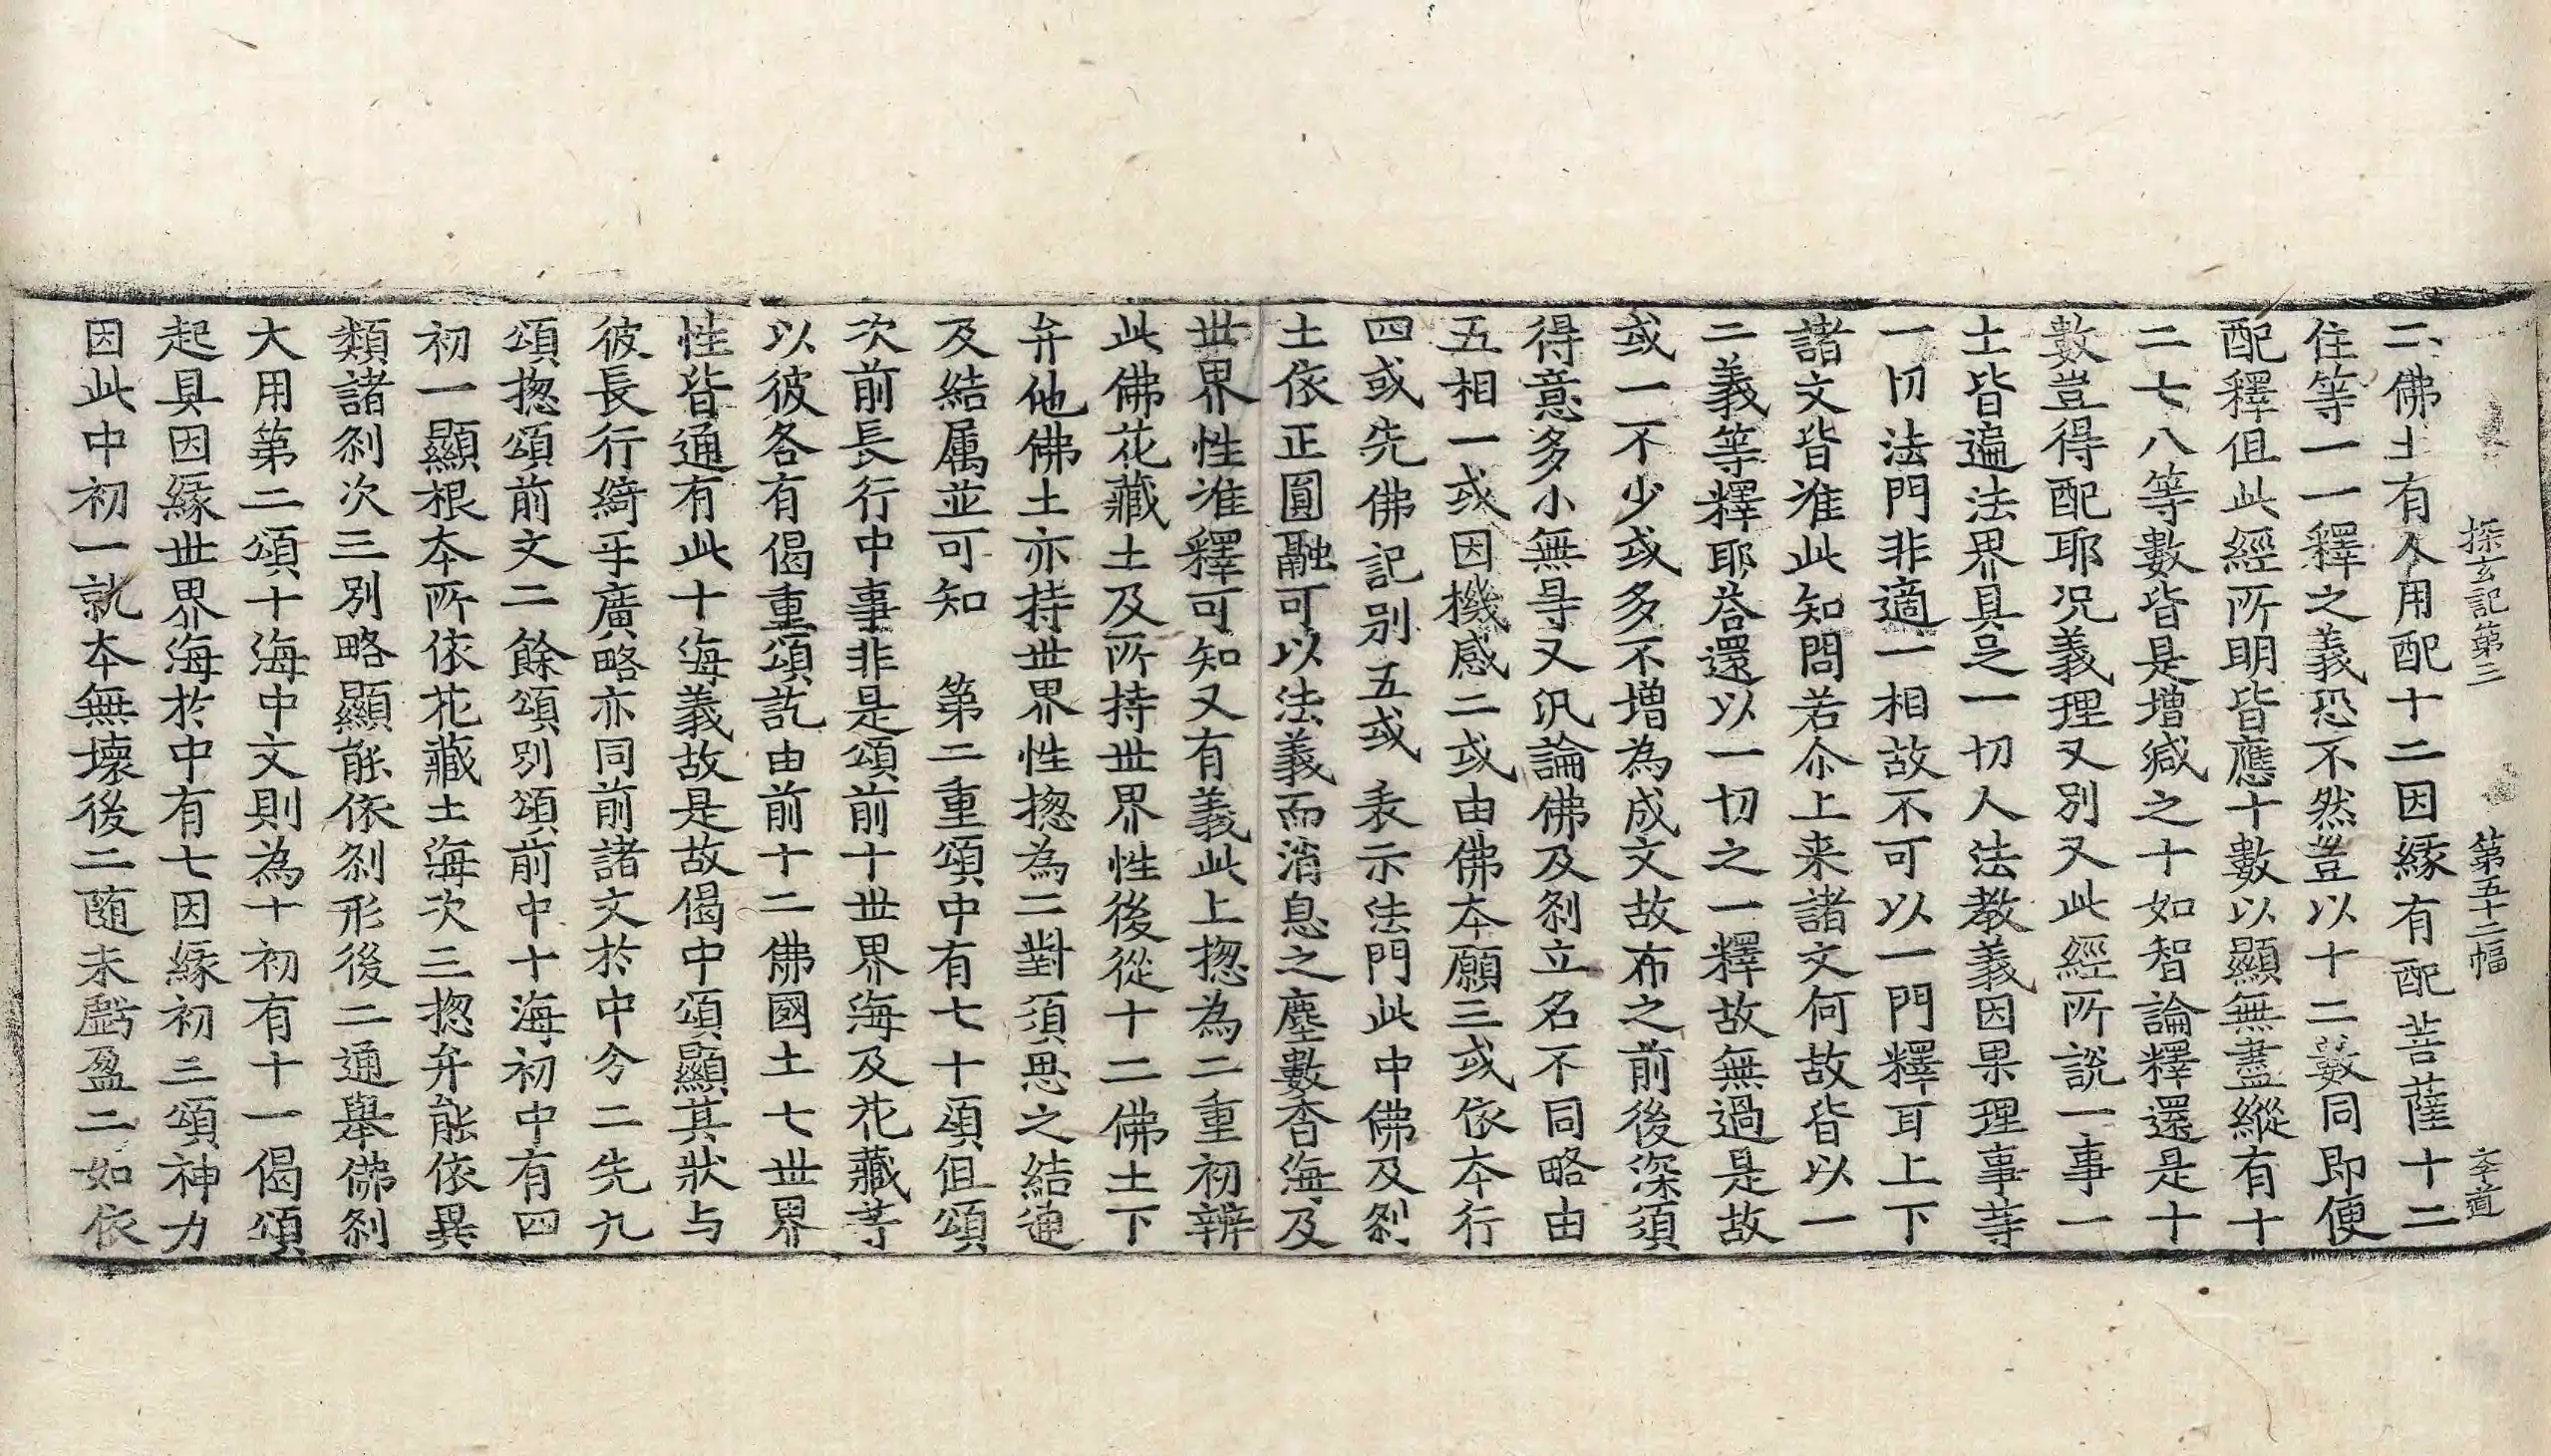 探玄記第三　第五十二幅　李道
二佛土有人用配十二因緣有配菩薩十二
住等一一釋之義恐不然豈以十二數同即便
配釋但此經所明皆應十數以顯無盡縱有十
二七八等數皆是增減之十如智論釋還是十
數豈得配耶况義理又別又此經所說一事一
土皆遍法界具足一切人法教義因果理事䓁
一切法門非適一相故不可以一門釋耳上下
諸文皆准此知問若尒上来諸文何故皆以一
二義等釋耶荅還以一切之一釋故無過是故
或一不少或多不增為成文故布之前後深須
得意多小無㝵又汎論佛及刹立名不同略由
五相一或因機感二或由佛本願三或依本行
四或先佛記別五或表示法門此中佛及刹
土依正圓融可以法義而消息之塵數香海及
世界性准釋可知又有義此上揔為二重初辨
此佛花藏土及所持世界性後從十二佛土下
弁他佛土亦持世界性揔為二對須思之結通
及結属並可知　第二重頌中有七十頌但頌
次前長行中事非是頌前十世界海及花藏䓁
以彼各有偈重頌訖由前十二佛國土七世界
性皆通有此十海義故是故偈中頌顯其狀与
彼長行綺乎廣略亦同前諸文於中分二先九
頌揔頌前文二餘頌別頌前中十海初中有四
初一顯根本所依花藏土海次三揔弁能依異
類諸刹次三別略顯能依刹形後二通舉佛刹
大用第二頌十海中文則為十初有十一偈頌
起具因緣世界海於中有七因緣初三頌神力
因此中初一就本無壞後二随末虧盈二如依